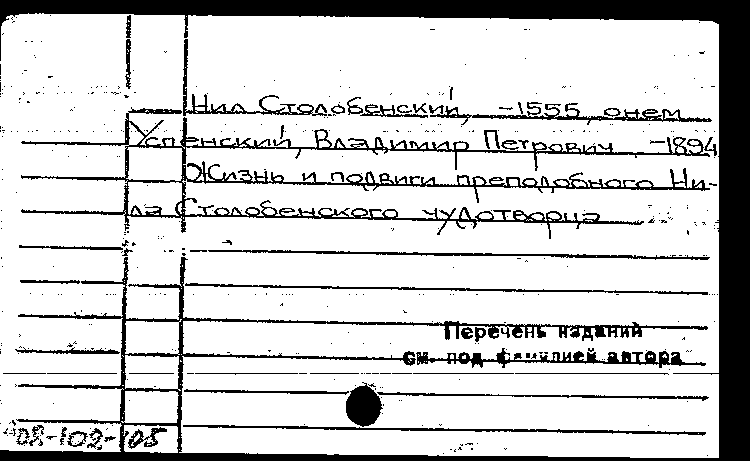 Нил Столобенский, -1555, о нем
Успенский, Владимир Петрович, -1894
Жизнь и подвиги преподобного Ни-
ла Столобенского чудотворца
Перечень изданий
см. под фамилией автора
08-102-105